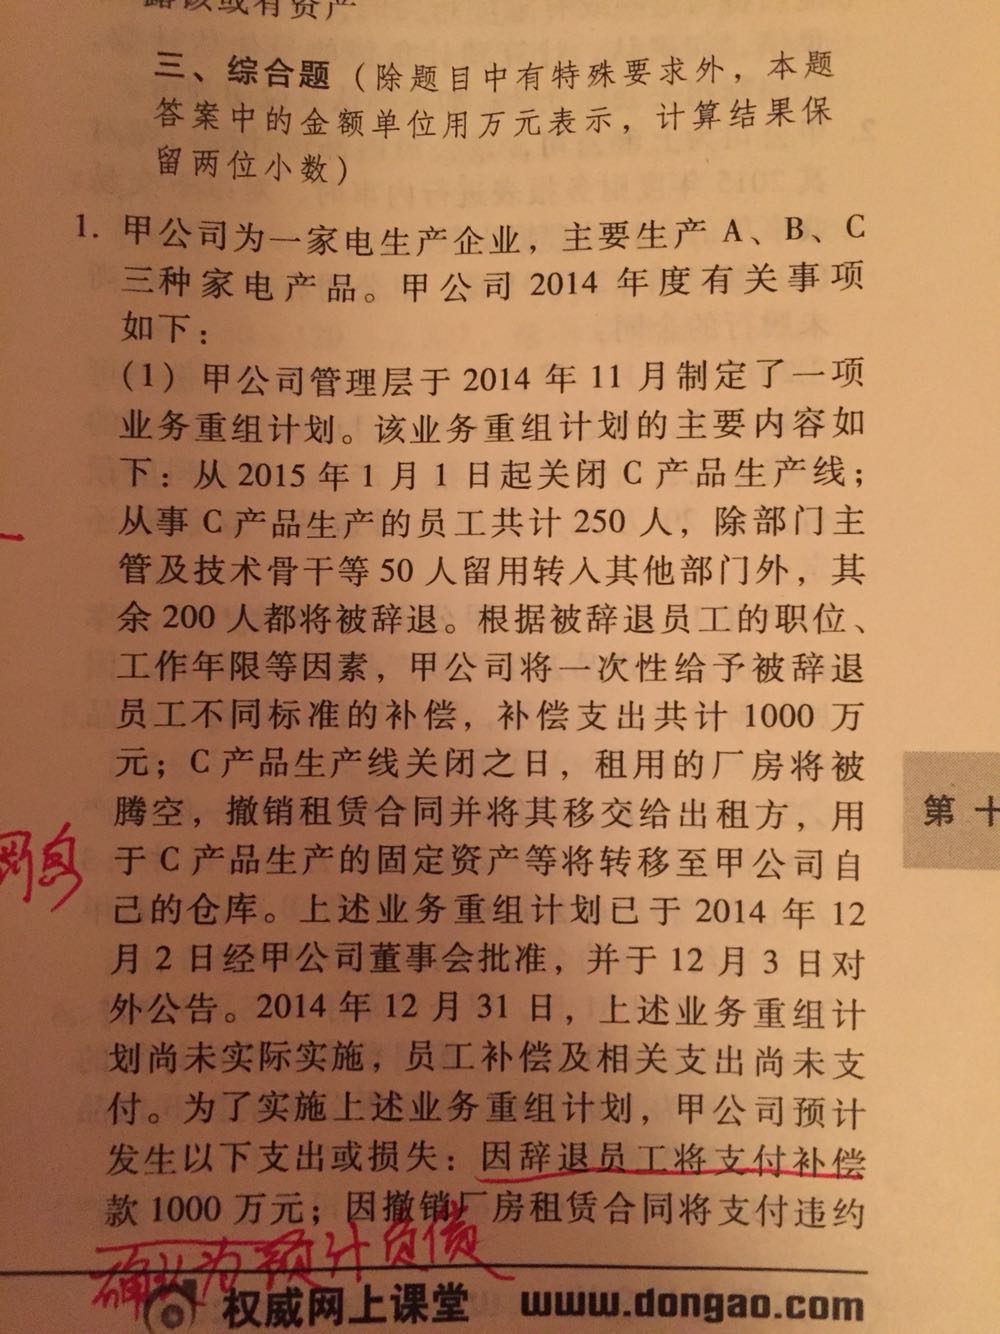 路该或有资产
三、综合题（除题目中有特殊要求外，本题
答案中的金额单位用万元表示，计算结果保
留两位小数）
1. 甲公司为一家电生产企业，主要生产 A、B、C
三种家电产品。甲公司 2014 年度有关事项
如下：
（1）甲公司管理层于 2014 年 11 月制定了一项
业务重组计划。该业务重组计划的主要内容如
下：从 2015 年 1 月 1 日起关闭 C 产品生产线；
从事 C 产品生产的员工共计 250 人，除部门主
管及技术骨干等 50 人留用转入其他部门外，其
余 200 人都将被辞退。根据被辞退员工的职位、
工作年限等因素，甲公司将一次性给予被辞退
员工不同标准的补偿，补偿支出共计 1000 万
元；C 产品生产线关闭之日，租用的厂房将被
腾空，撤销租赁合同并将其移交给出租方，用
于 C 产品生产的固定资产等将转移至甲公司自
己的仓库。上述业务重组计划已于 2014 年 12
月 2 日经甲公司董事会批准，并于 12 月 3 日对
外公告。2014 年 12 月 31 日，上述业务重组计
划尚未实际实施，员工补偿及相关支出尚未支
付。为了实施上述业务重组计划，甲公司预计
发生以下支出或损失：因辞退员工将支付补偿
款 1000 万元；因撤销厂房租赁合同将支付违约
确认为预计负债
权威网上课堂 www.dongao.com
第十